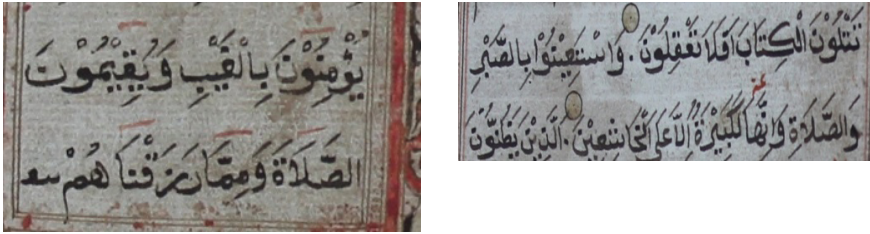 يُؤْمِنُوْنَ بِالْغَيْبِ وَيُقِيْمُوْنَ
الصَّلَاةَ وَمِمَّا رَزَقْنَا هُمْ
تَتْلُوْنَ الْكِتَابَ اَفَلَا تَعْقِلُوْنَ. وَاسْتَعِيْنُوْا بِالصَّبْرِ
وَالصَّلَاةِ وَاِنَّهَا لَكَبِيْرَةٌ اِلَّا عَلَى الْخَاشِعِيْنَ. الَّذِيْنَ يَظُنُّوْنَ